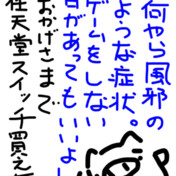 何やら風邪の
ような症状。
ゲームをしない
日があってもいいよ
おかげさまで
任天堂スイッチ買え